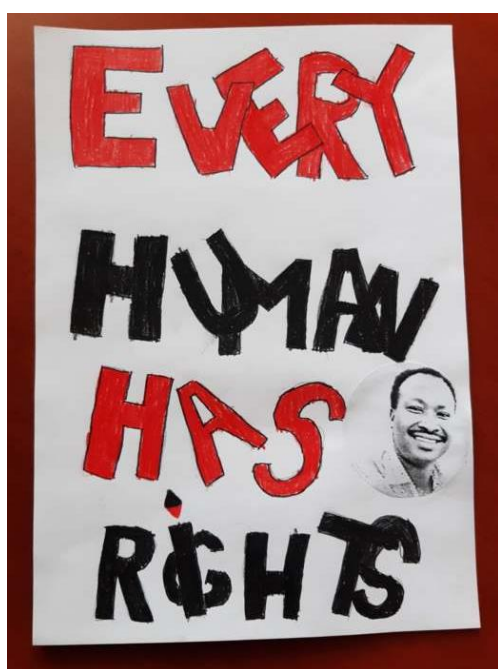 EVERY
HUMAN
HAS
RiGHTS